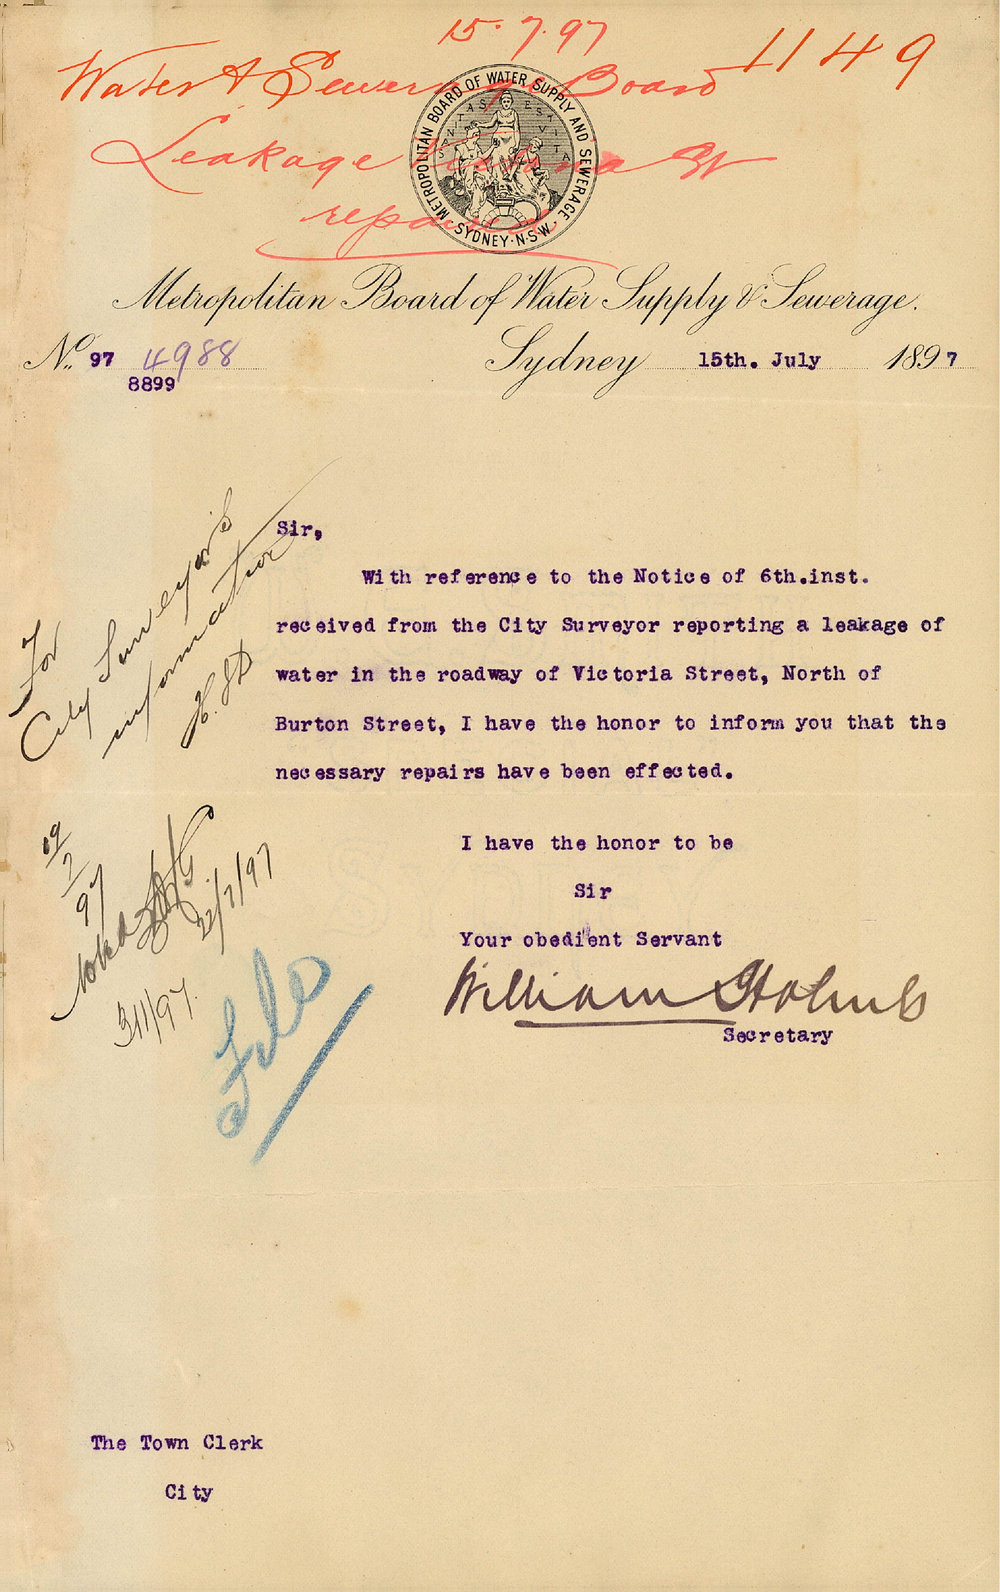 15.7.97
1149
Water & Sewerage Board
Leakage Victoria St
repaired
METROPOLITAN BOARD OF WATER SUPPLY AND SEWERAGE
SYDNEY·N·S·W·
SANITAS EST VITA
Metropolitan Board of Water Supply & Sewerage.
No. 97 4988
8899
Sydney 15th. July 1897
For
City Surveyor's
information
Sir,
With reference to the Notice of 6th.inst.
received from the City Surveyor reporting a leakage of
water in the roadway of Victoria Street, North of
Burton Street, I have the honor to inform you that the
necessary repairs have been effected.
I have the honor to be
Sir
Your obedient Servant
William Holmes
Secretary
19/7/97
Noted
22/7/97
File
The Town Clerk
City